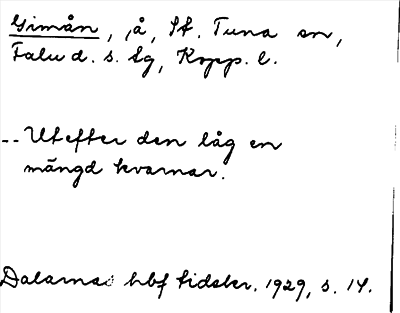 Gimån, å, St. Tuna sn,
Falu d. s. lg, Kopp. l.
-- Utefter den låg en
mängd kvarnar.
Dalarnas hbf tidskr. 1929, s. 14.